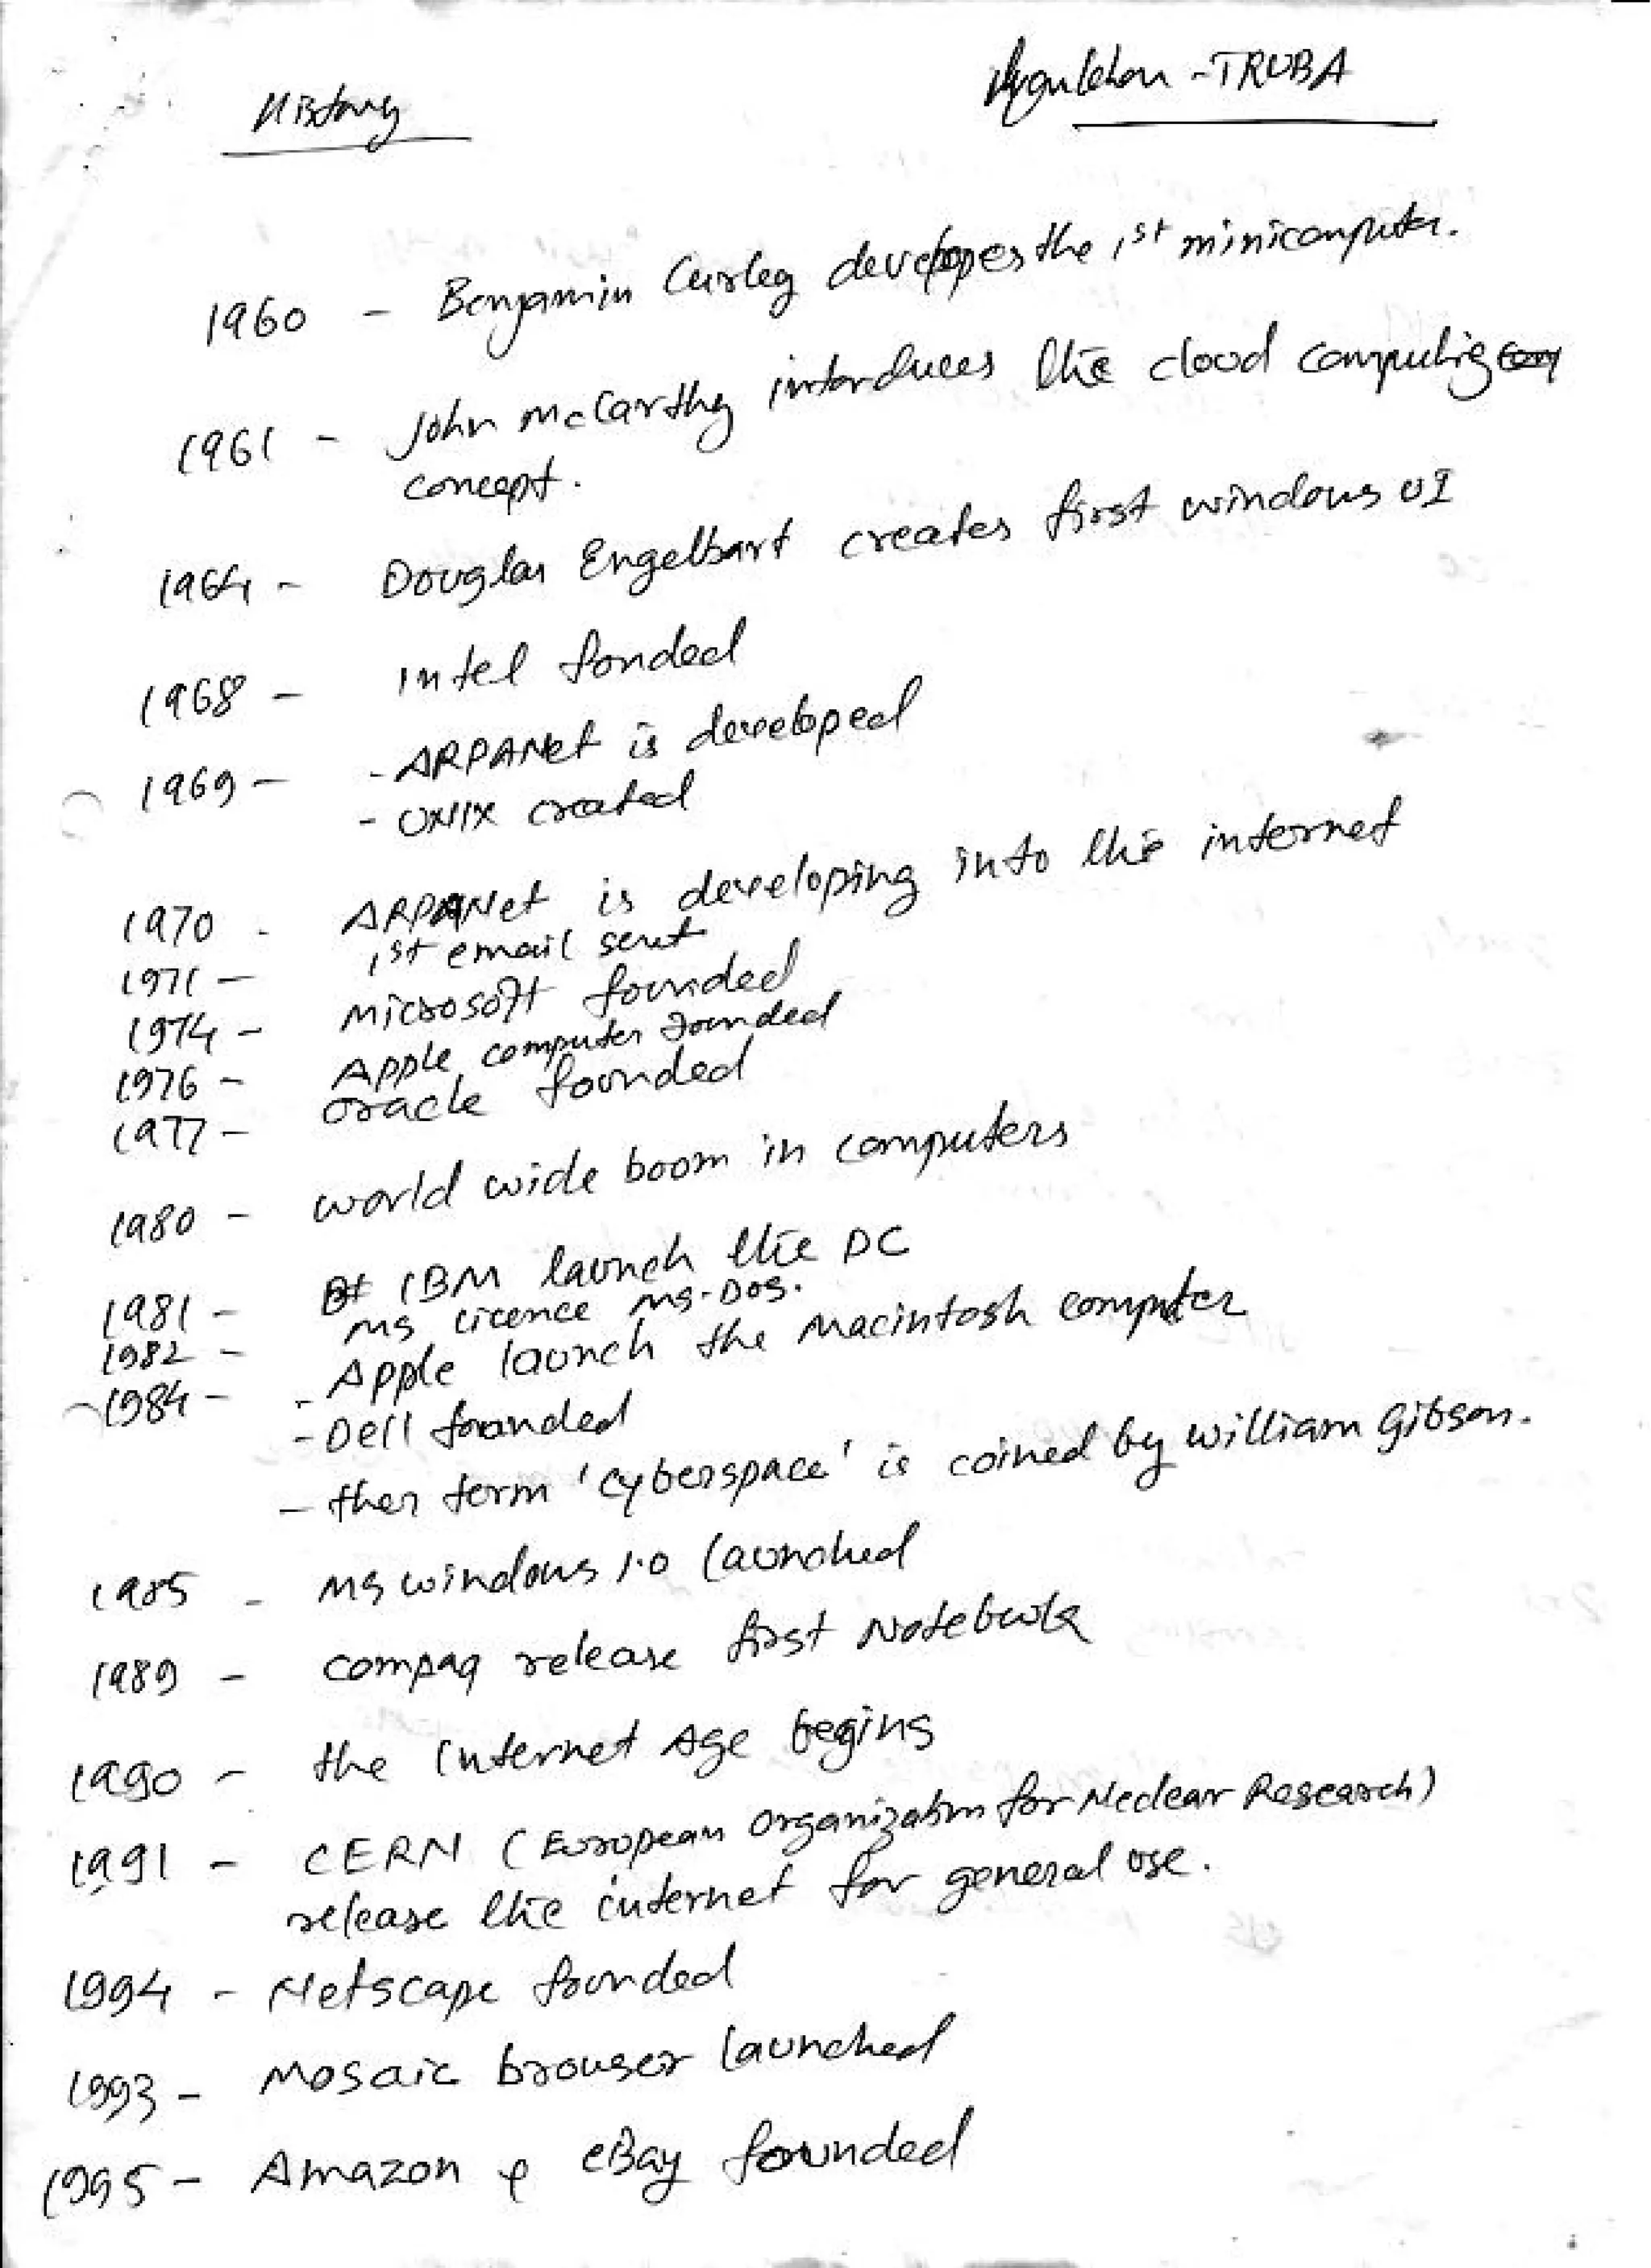 History
-TRUBA
1960 - Benjamin Curley developes the 1st minicomputer.
1961 - John McCarthy intorduces the cloud computig
concept.
1964 - Douglas Engelbart creates first windows UI
1968 - Intel fonded
1969 - - ARPANet is developed
- UNIX created
1970 - ARPANet is developing into the internet
1971 - 1st email sent
1974 - Microsoft founded
1976 - Apple computer founded
1977 - Oracle founded
1980 - world wide boom in computers
1981 - IBM launch the DC
1982 - MS licence MS-DOS.
1984 - - Apple launch the Macintosh computer
- Dell founded
- then term 'cyberspace' is coined by william Gibson.
1985 - MS windows 1.0 launched
1989 - compaq release first Notebook
1990 - the Internet Age begins
1991 - CERN (European Organization for Neclear Research)
release the internet for general use.
1994 - Netscape founded
1993 - Mosaic browser launched
1995 - Amazon & eBay founded